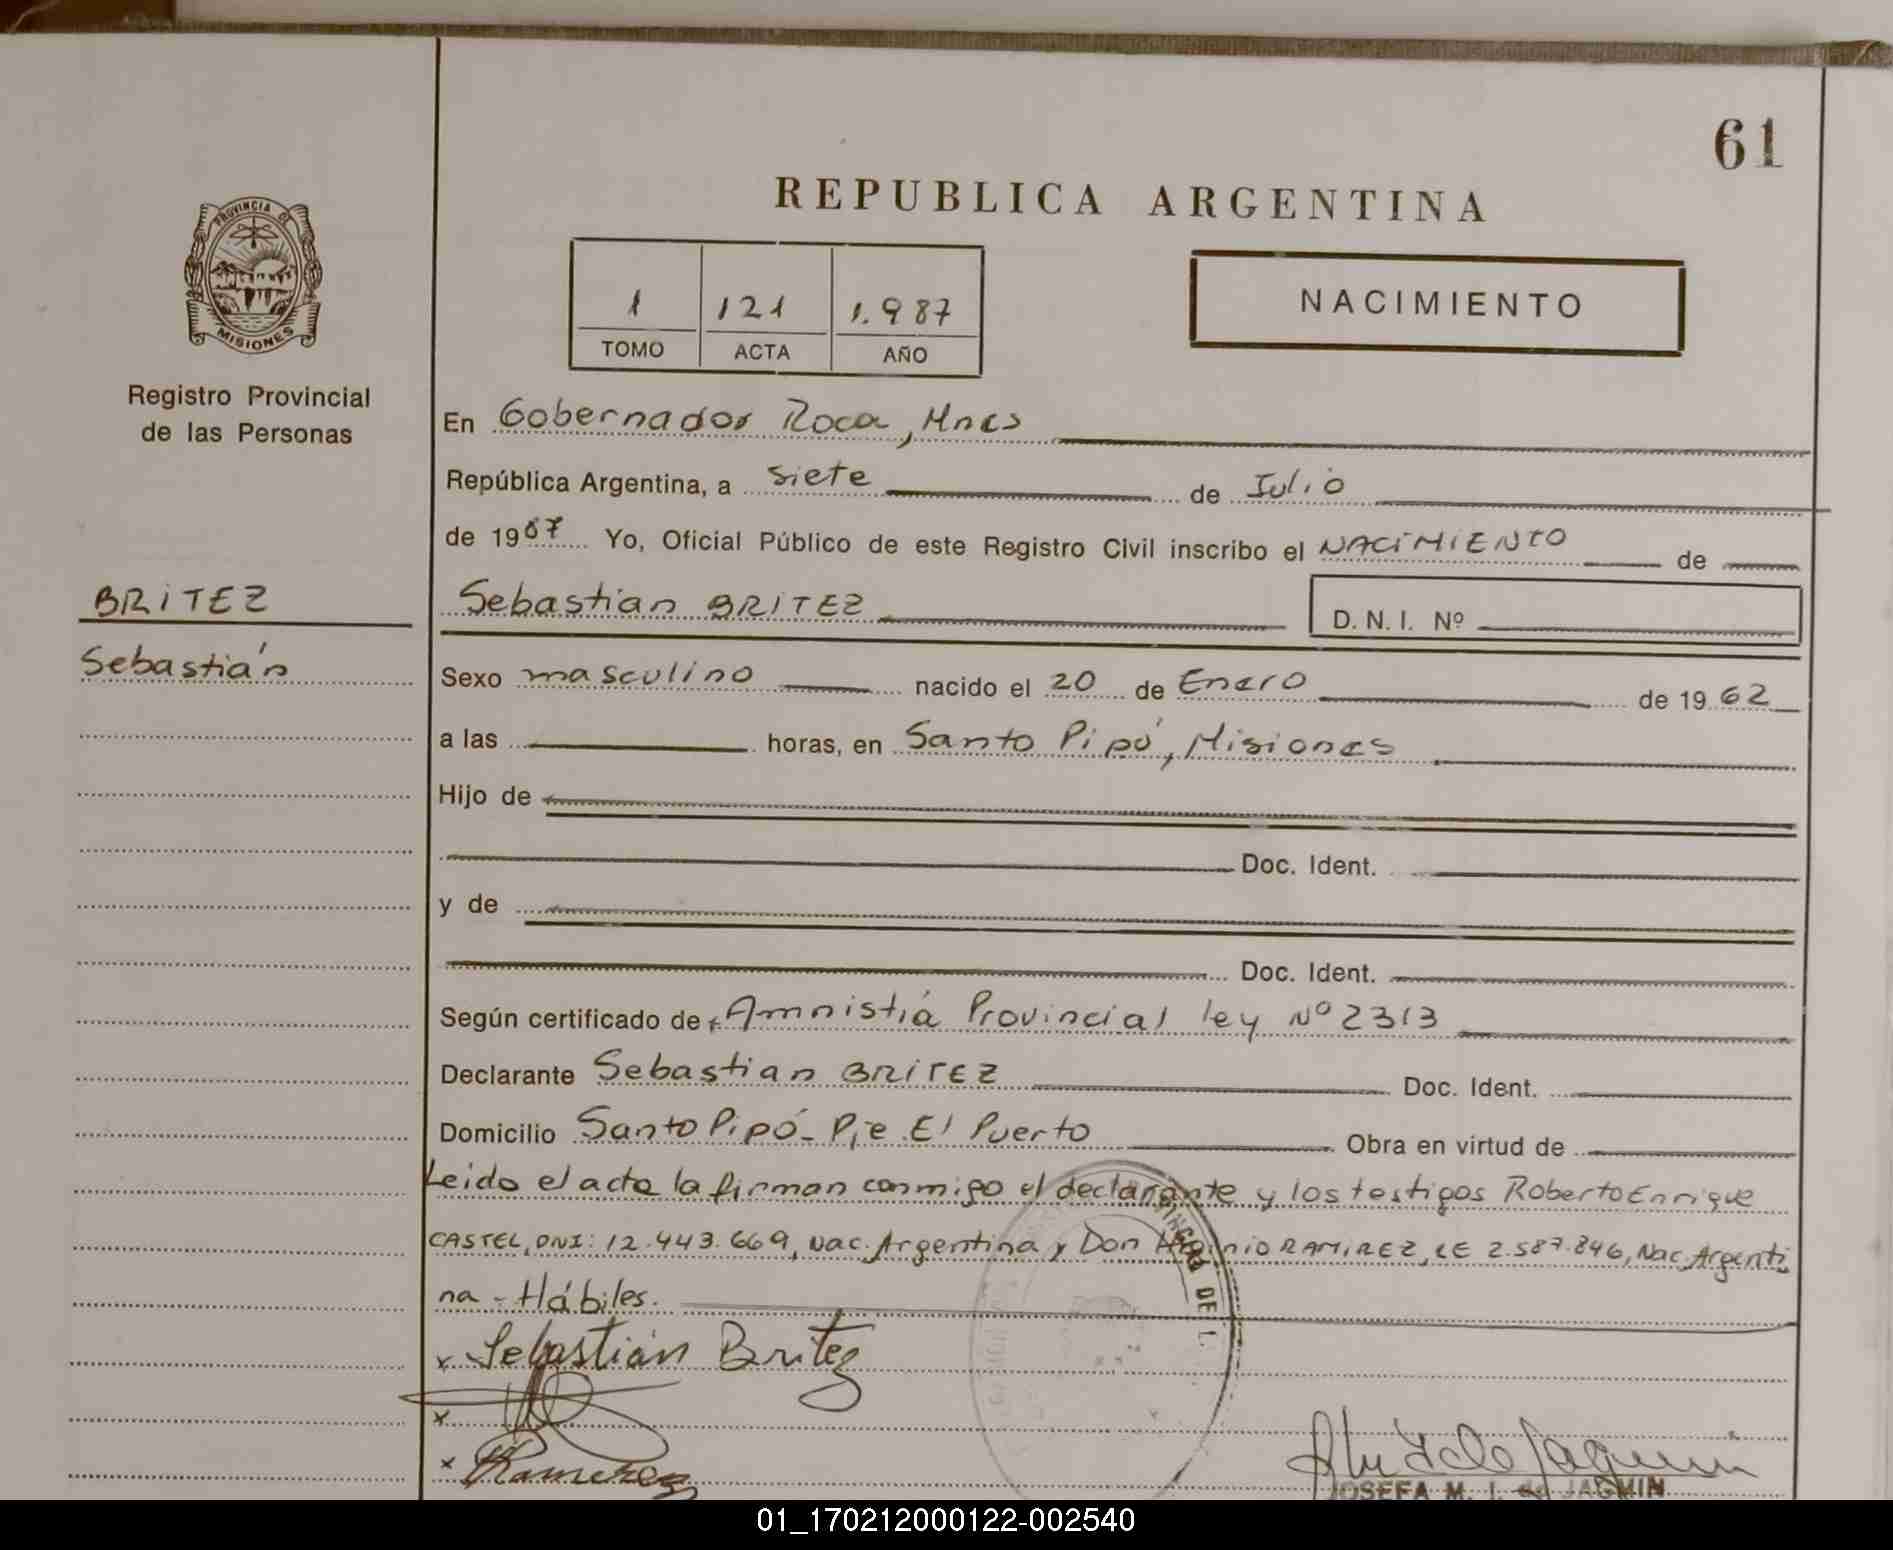 61
REPUBLICA ARGENTINA
PROVINCIA DE
MISIONES
1 121 1.987
TOMO ACTA AÑO
NACIMIENTO
Registro Provincial
de las Personas
BRITEZ
Sebastián
En Gobernador Roca, Mnes
República Argentina, a siete de Julio
de 1987 Yo, Oficial Público de este Registro Civil inscribo el NACIMIENTO de
Sebastian BRITEZ D. N. I. Nº
Sexo masculino nacido el 20 de Enero de 1962
a las horas, en Santo Pipó, Misiones
Hijo de
Doc. Ident.
y de
Doc. Ident.
Según certificado de Amnistiá Provincial ley Nº 2313
Declarante Sebastian BRITEZ Doc. Ident.
Domicilio Santo Pipó - Pje El Puerto Obra en virtud de
Leido el acta la firman conmigo el declarante y los testigos Roberto Enrique
CASTEL, DNI: 12.443.669, Nac. Argentina y Don RAMIREZ, LE 2.587.846, Nac. Argenti
na - Hábiles.
x Sebastián Britez
x
x Ramirez
JOSEFA M. I. de JAGMIN
01_170212000122-002540